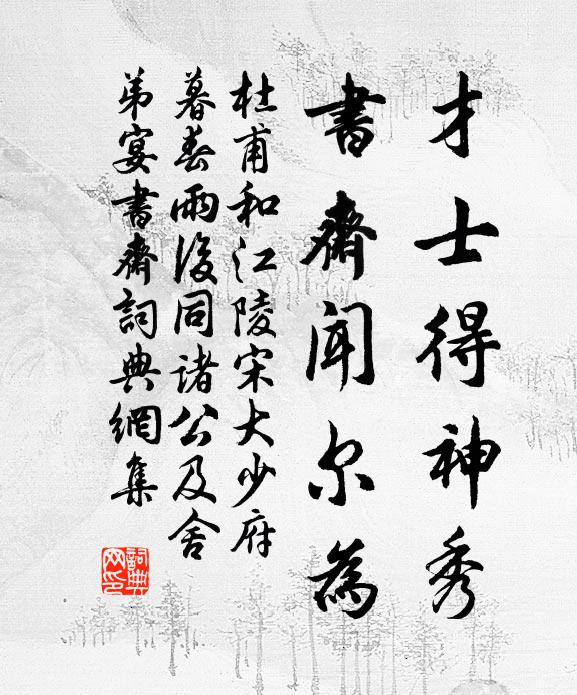 才士得神秀
書齋聞尔為
杜甫和江陵宋大少府
暮春雨後同諸公及舍
弟宴書齋詞典網集
詞典网印